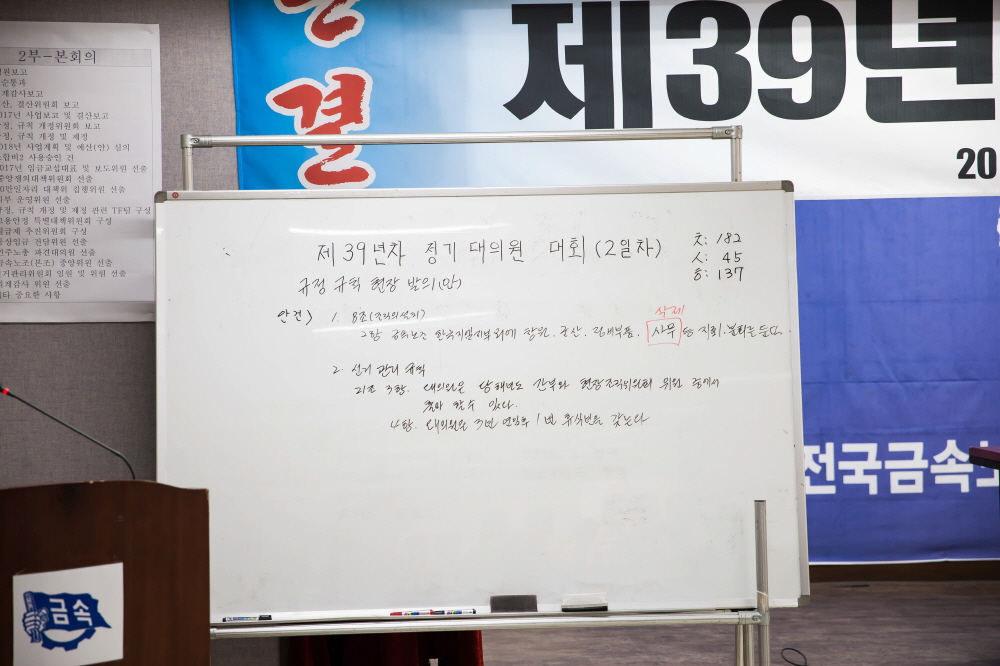 결
제39년
20
2부-본회의
계감사보고
산, 결산위원회 보고
2017년 사업보고 및 결산보고
규칙 개정위원회 보고
규칙 개정 및 제정
2018년 사업계획 및 예산(안) 심의
사용승인 건
2017년 임금교섭대표 및 보도위원 선출
중앙쟁의대책위원회 선출
10만일자리 대책위 집행위원 선출
운영위원 선출
규칙 개정 및 제정 관련 TF팀 구성
고용안정 특별대책위원회 구성
월급제 추진위원회 구성
통상임금 전담위원 선출
민주노총 파견대의원 선출
금속노조(본조) 중앙위원 선출
선거관리위원회 임원 및 위원 선출
회계감사 위원 선출
기타 중요한 사항
제 39년차 정기 대의원 대회 (2일차)
규정 규칙 현장 발의(안)
안건> 1. 8조(조직의설치)
삭제
사무
2. 선거 관리 규칙
3항. 대의원은 당해년도 간부와 현장조직위원회 위원 중에서
할 수 있다.
4항. 대의원은 3년 연임후 1년 휴식년을 갖는다
첫: 182
人: 45
137
전국금속노
금속